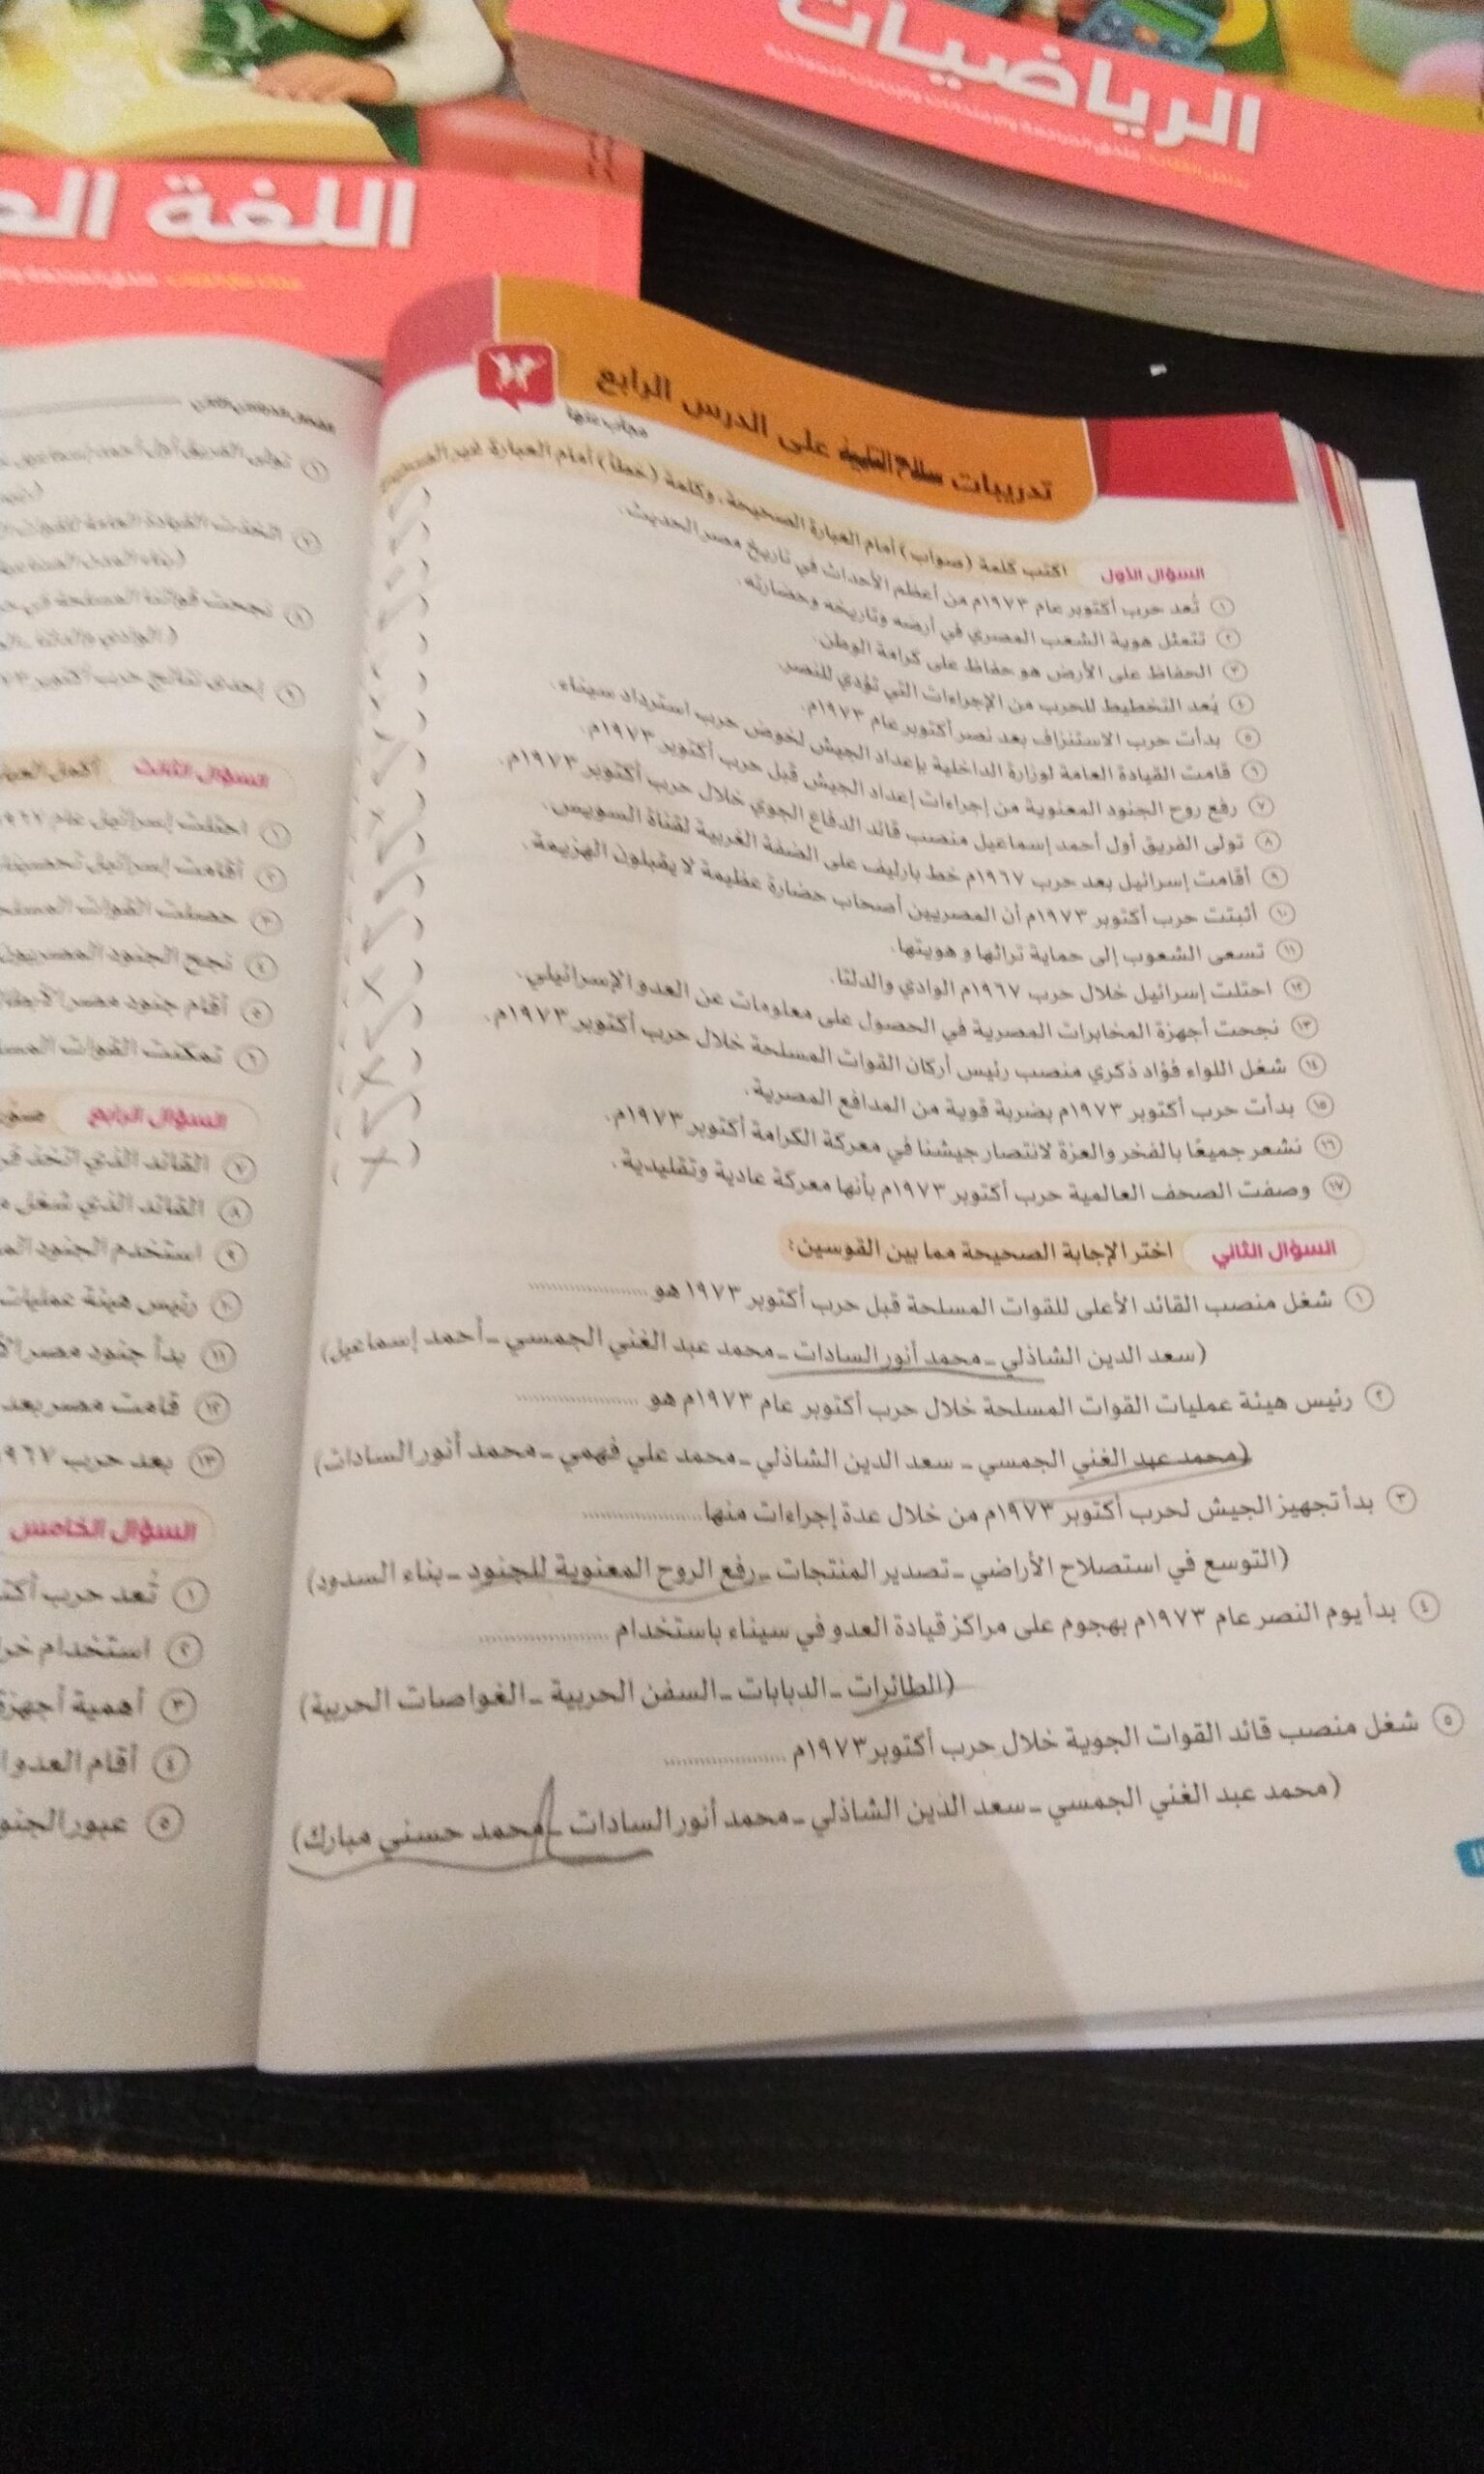 الرياضيات
اللغة
تدريبات سلاح التلميذ على الدرس الرابع
١٢
مجاب عنها
السؤال الأول اكتب كلمة (صواب) أمام العبارة الصحيحة، وكلمة (خطأ) أمام العبارة غير الصحيحة
١ تُعد حرب أكتوبر عام ١٩٧٣م من أعظم الأحداث في تاريخ مصر الحديث.
٢ تتمثل هوية الشعب المصري في أرضه وتاريخه وحضارته.
٣ الحفاظ على الأرض هو حفاظ على كرامة الوطن.
٤ يُعد التخطيط للحرب من الإجراءات التي تؤدي للنصر.
٥ بدأت حرب الاستنزاف بعد نصر أكتوبر عام ١٩٧٣م.
٦ قامت القيادة العامة لوزارة الداخلية بإعداد الجيش لخوض حرب استرداد سيناء.
٧ رفع روح الجنود المعنوية من إجراءات إعداد الجيش قبل حرب أكتوبر ١٩٧٣م.
٨ تولى الفريق أول أحمد إسماعيل منصب قائد الدفاع الجوي خلال حرب أكتوبر ١٩٧٣م.
٩ أقامت إسرائيل بعد حرب ١٩٦٧م خط بارليف على الضفة الغربية لقناة السويس.
١٠ أثبتت حرب أكتوبر ١٩٧٣م أن المصريين أصحاب حضارة عظيمة لا يقبلون الهزيمة.
١١ تسعى الشعوب إلى حماية تراثها وهويتها.
١٢ احتلت إسرائيل خلال حرب ١٩٦٧م الوادي والدلتا.
١٣ نجحت أجهزة المخابرات المصرية في الحصول على معلومات عن العدو الإسرائيلي.
١٤ شغل اللواء فؤاد ذكري منصب رئيس أركان القوات المسلحة خلال حرب أكتوبر ١٩٧٣م.
١٥ بدأت حرب أكتوبر ١٩٧٣م بضربة قوية من المدافع المصرية.
١٦ نشعر جميعًا بالفخر والعزة لانتصار جيشنا في معركة الكرامة أكتوبر ١٩٧٣م.
١٧ وصفت الصحف العالمية حرب أكتوبر ١٩٧٣م بأنها معركة عادية وتقليدية.
السؤال الثاني اختر الإجابة الصحيحة مما بين القوسين:
١ شغل منصب القائد الأعلى للقوات المسلحة قبل حرب أكتوبر ١٩٧٣ هو ....................
(سعد الدين الشاذلي - محمد أنور السادات - محمد عبد الغني الجمسي - أحمد إسماعيل)
٢ رئيس هيئة عمليات القوات المسلحة خلال حرب أكتوبر عام ١٩٧٣م هو ....................
(محمد عبد الغني الجمسي - سعد الدين الشاذلي - محمد علي فهمي - محمد أنور السادات)
٣ بدأ تجهيز الجيش لحرب أكتوبر ١٩٧٣م من خلال عدة إجراءات منها ....................
(التوسع في استصلاح الأراضي - تصدير المنتجات - رفع الروح المعنوية للجنود - بناء السدود)
٤ بدأ يوم النصر عام ١٩٧٣م بهجوم على مراكز قيادة العدو في سيناء باستخدام ....................
(الطائرات - الدبابات - السفن الحربية - الغواصات الحربية)
٥ شغل منصب قائد القوات الجوية خلال حرب أكتوبر ١٩٧٣م ....................
(محمد عبد الغني الجمسي - سعد الدين الشاذلي - محمد أنور السادات - محمد حسني مبارك)
السؤال الثالث
١ احتلت إسرائيل عام
٢ أقامت إسرائيل
٣ حصلت القوات
٤ نجح الجنود المصريون
٥ أقام جنود مصر
٦ تمكنت القوات
السؤال الرابع
٧ القائد الذي اتخذ
٨ القائد الذي شغل
٩ استخدم الجنود
١٠ رئيس هيئة عمليات
١١ بدأ جنود مصر
١٢ قامت مصر بعد
١٣ بعد حرب
السؤال الخامس
١ تُعد حرب
٢ استخدام
٣ أهمية أجهزة
٤ أقام العدو
٥ عبور